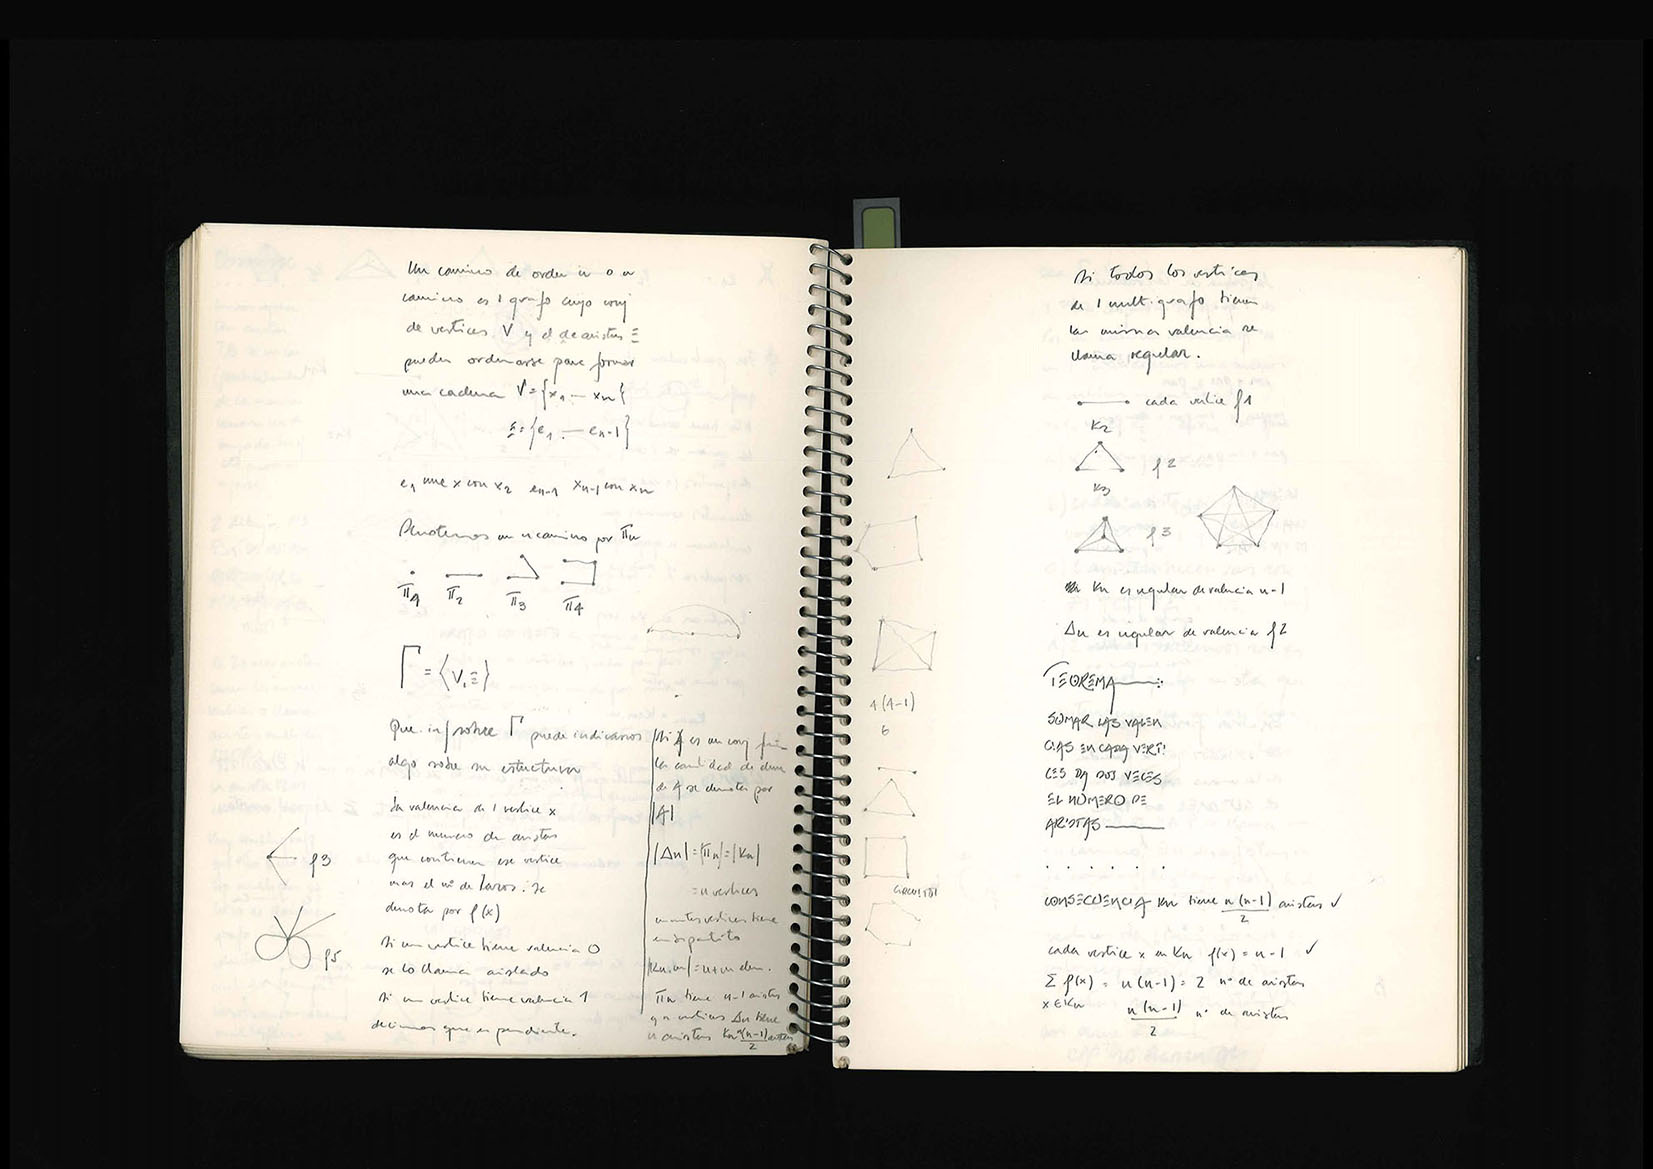 Un camino de orden n o n
camino es 1 grafo cuyo conj
de vertices V y el de aristas Ξ
pueden ordenarse para formar
una cadena V={x1 — xn}
Ξ={e1 — en-1}
e1 une x con x2 en-1 xn-1 con xn
Denotemos un n camino por πn
π1 π2 π3 π4
Γ = ⟨V, Ξ⟩
Que inf sobre Γ puede indicarnos
algo sobre su estructura
La valencia de 1 vertice x
es el numero de aristas
que contienen ese vertice
mas el nº de lazos. Se
denota por ρ(x)
ρ3
Si un vertice tiene valencia 0
se lo llama aislado
ρ5
Si un vertice tiene valencia 1
decimos que es pendiente.
Si A es un conj
la cantidad de elem
de A se denota por
|A|
|Δn| = |πn| = |Kn|
= n vertices
cuantos vertices tiene
|Kn,m| = n+m elem.
πn tiene n-1 aristas
y n vertices Δn tiene
n aristas Kn n(n-1)/2 aristas
4(4-1)
6
CIRCUITOS
Si todos los vertices
de 1 multigrafo tienen
la misma valencia se
llama regular.
cada vertice ρ1
K2
ρ2
K3
ρ3
Kn es regular de valencia n-1
Δn es regular de valencia ρ2
TEOREMA — :
SUMAR LAS VALEN
CIAS EN CADA VERTI
CES DA DOS VECES
EL NUMERO DE
ARISTAS —
. . . . . .
CONSECUENCIA Kn tiene n(n-1)/2 aristas ✓
cada vertice x en Kn ρ(x) = n-1 ✓
Σ ρ(x) = n(n-1) = 2 nº de aristas
x∈Kn n(n-1)/2 nº de aristas